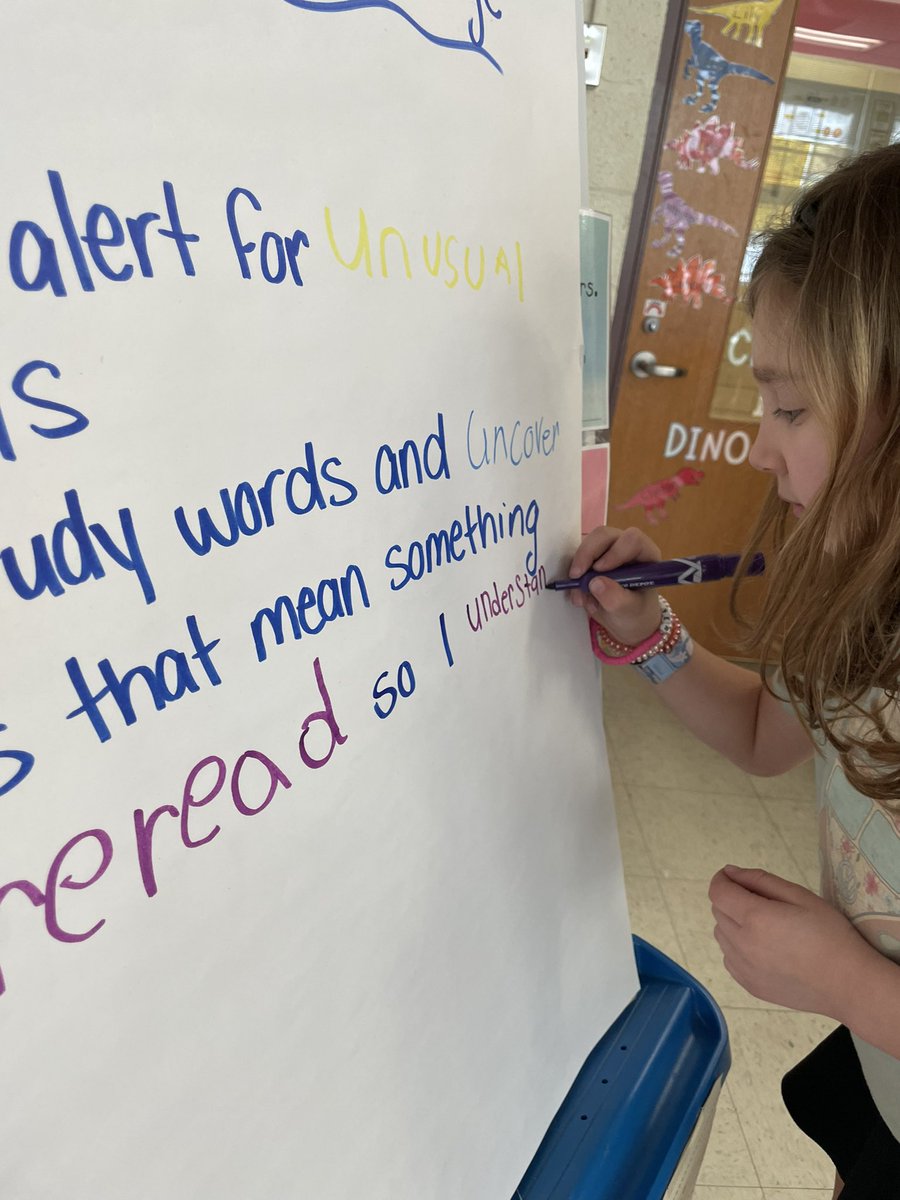 alert for unusual
udy words and uncover
that mean something
reread so I understan
rs.
DINO